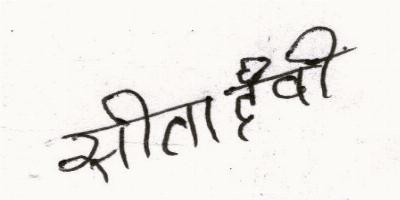 सीता देवी